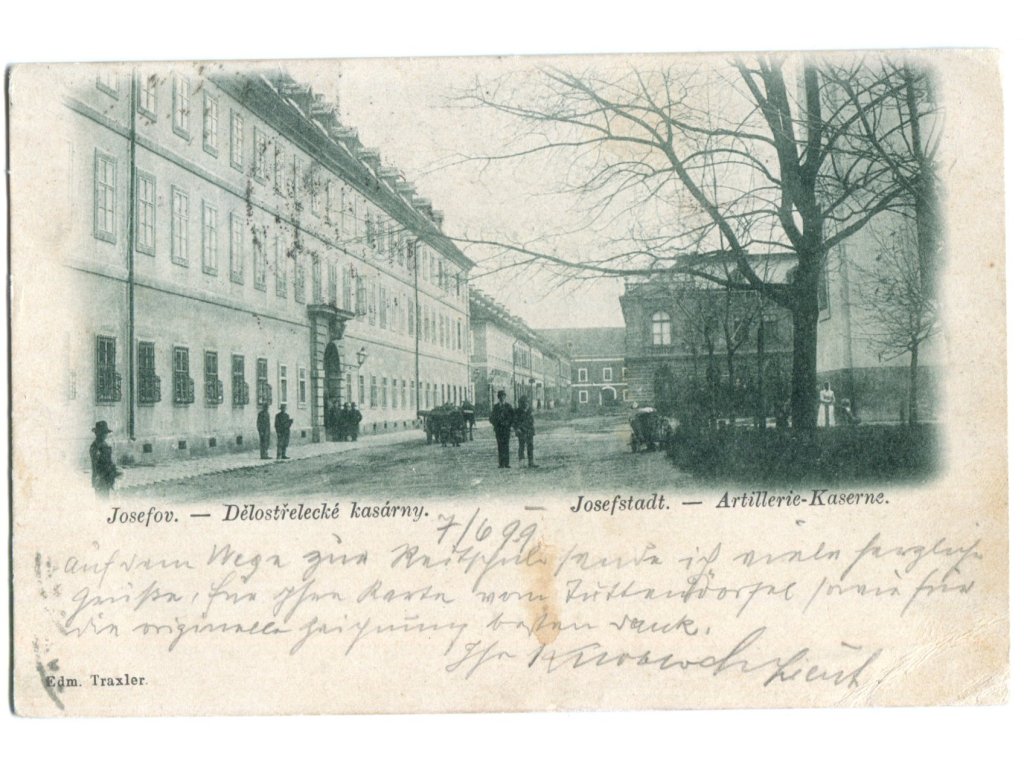 Josefov. — Dělostřelecké kasárny. — Josefstadt. — Artillerie-Kaserne.
7/6 99
Auf dem Wege zur Reitschule sende ich viele herzliche
Grüße, für Ihre Karte vom Tuttendörfel sowie für
die originelle Zeichnung besten Dank.
Ihr Lieut
Edm. Traxler.